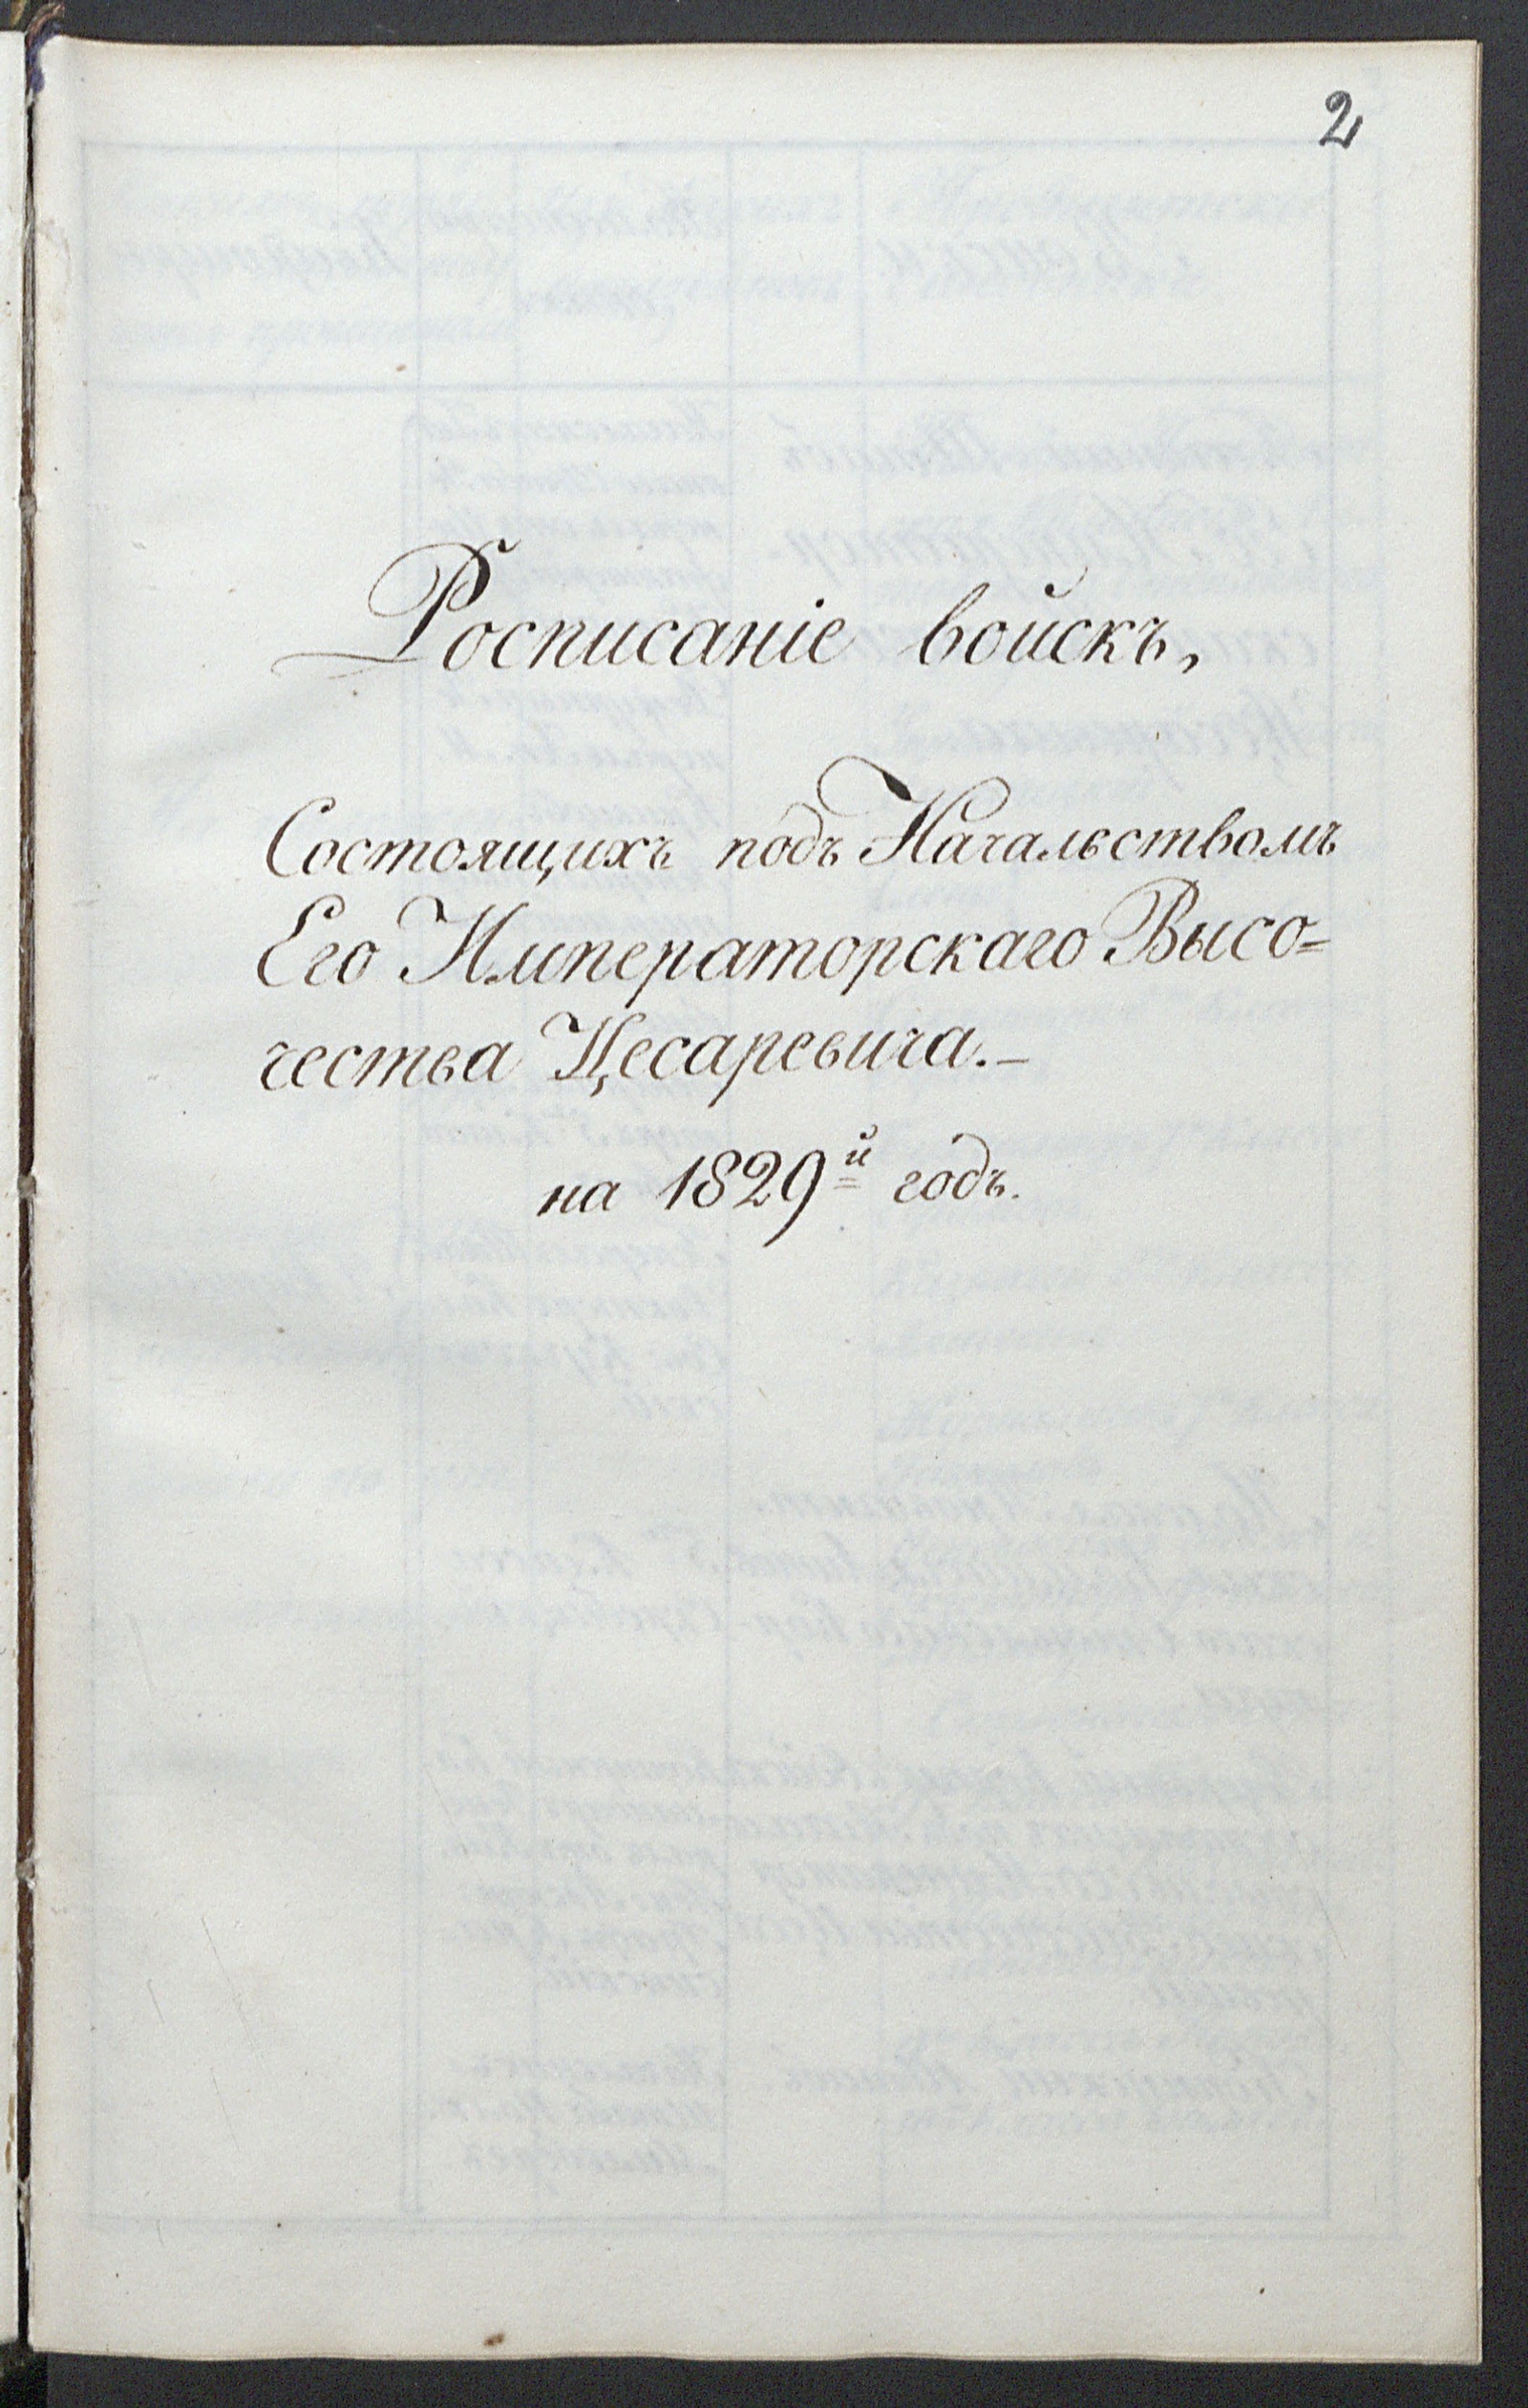 2
Росписаніе войскъ,
Состоящихъ подъ Начальствомъ
Его Императорскаго Высо=
чества Цесаревича.-
на 1829й годъ.